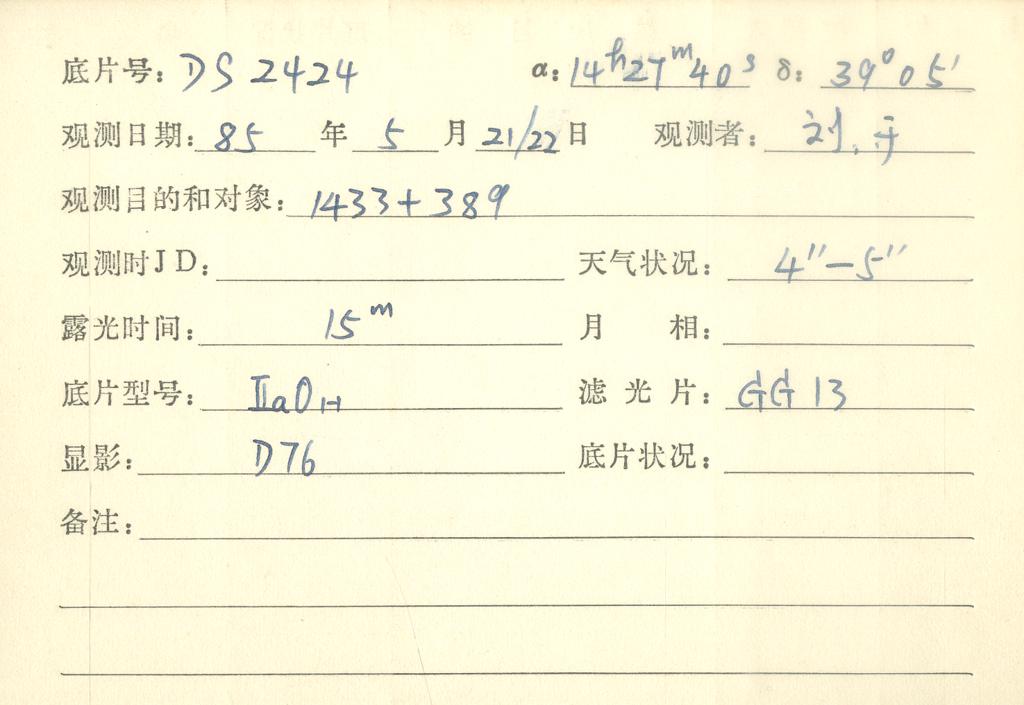 底片号: DS 2424 α: 14h27m40s δ: 39°05′
观测日期: 85 年 5 月 21/22 日 观测者: 刘.于
观测目的和对象: 1433+389
观测时JD: 天气状况: 4″—5″
露光时间: 15m 月 相:
底片型号: ⅡaOH 滤光片: GG 13
显影: D76 底片状况:
备注: